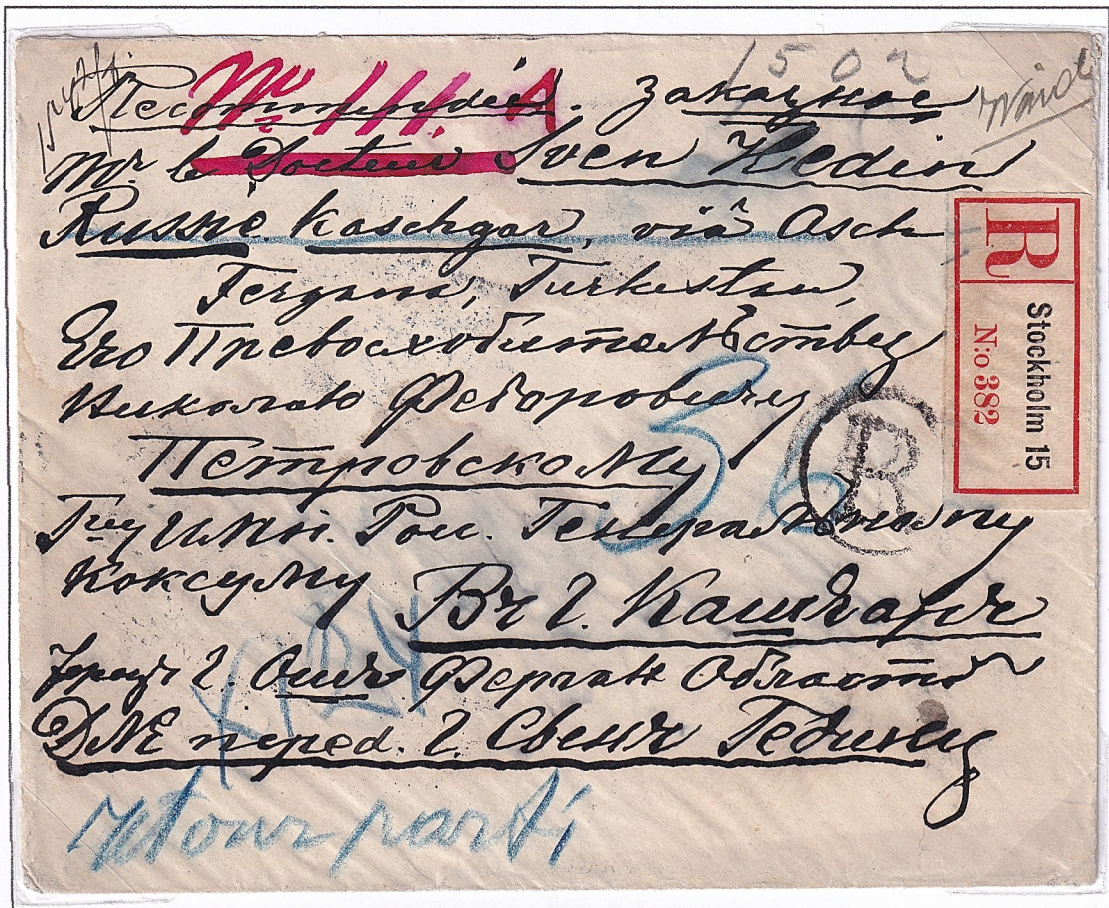 1502
Recommandée. Заказное
№ 111. A
Mr le Docteur Sven Hedin
Russie. Kaschgar, viâ Osch
Fergana, Turkestan,
Его Превосходительству
Николаю Федоровичу
Петровскому
Имп. Росс. Генеральному
Консулу Въ г. Кашгаръ
г. Ошъ Ферган Область
Для перед. г. Свенъ Гедину
retour parti
36
R
R
Stockholm 15
N:o 382